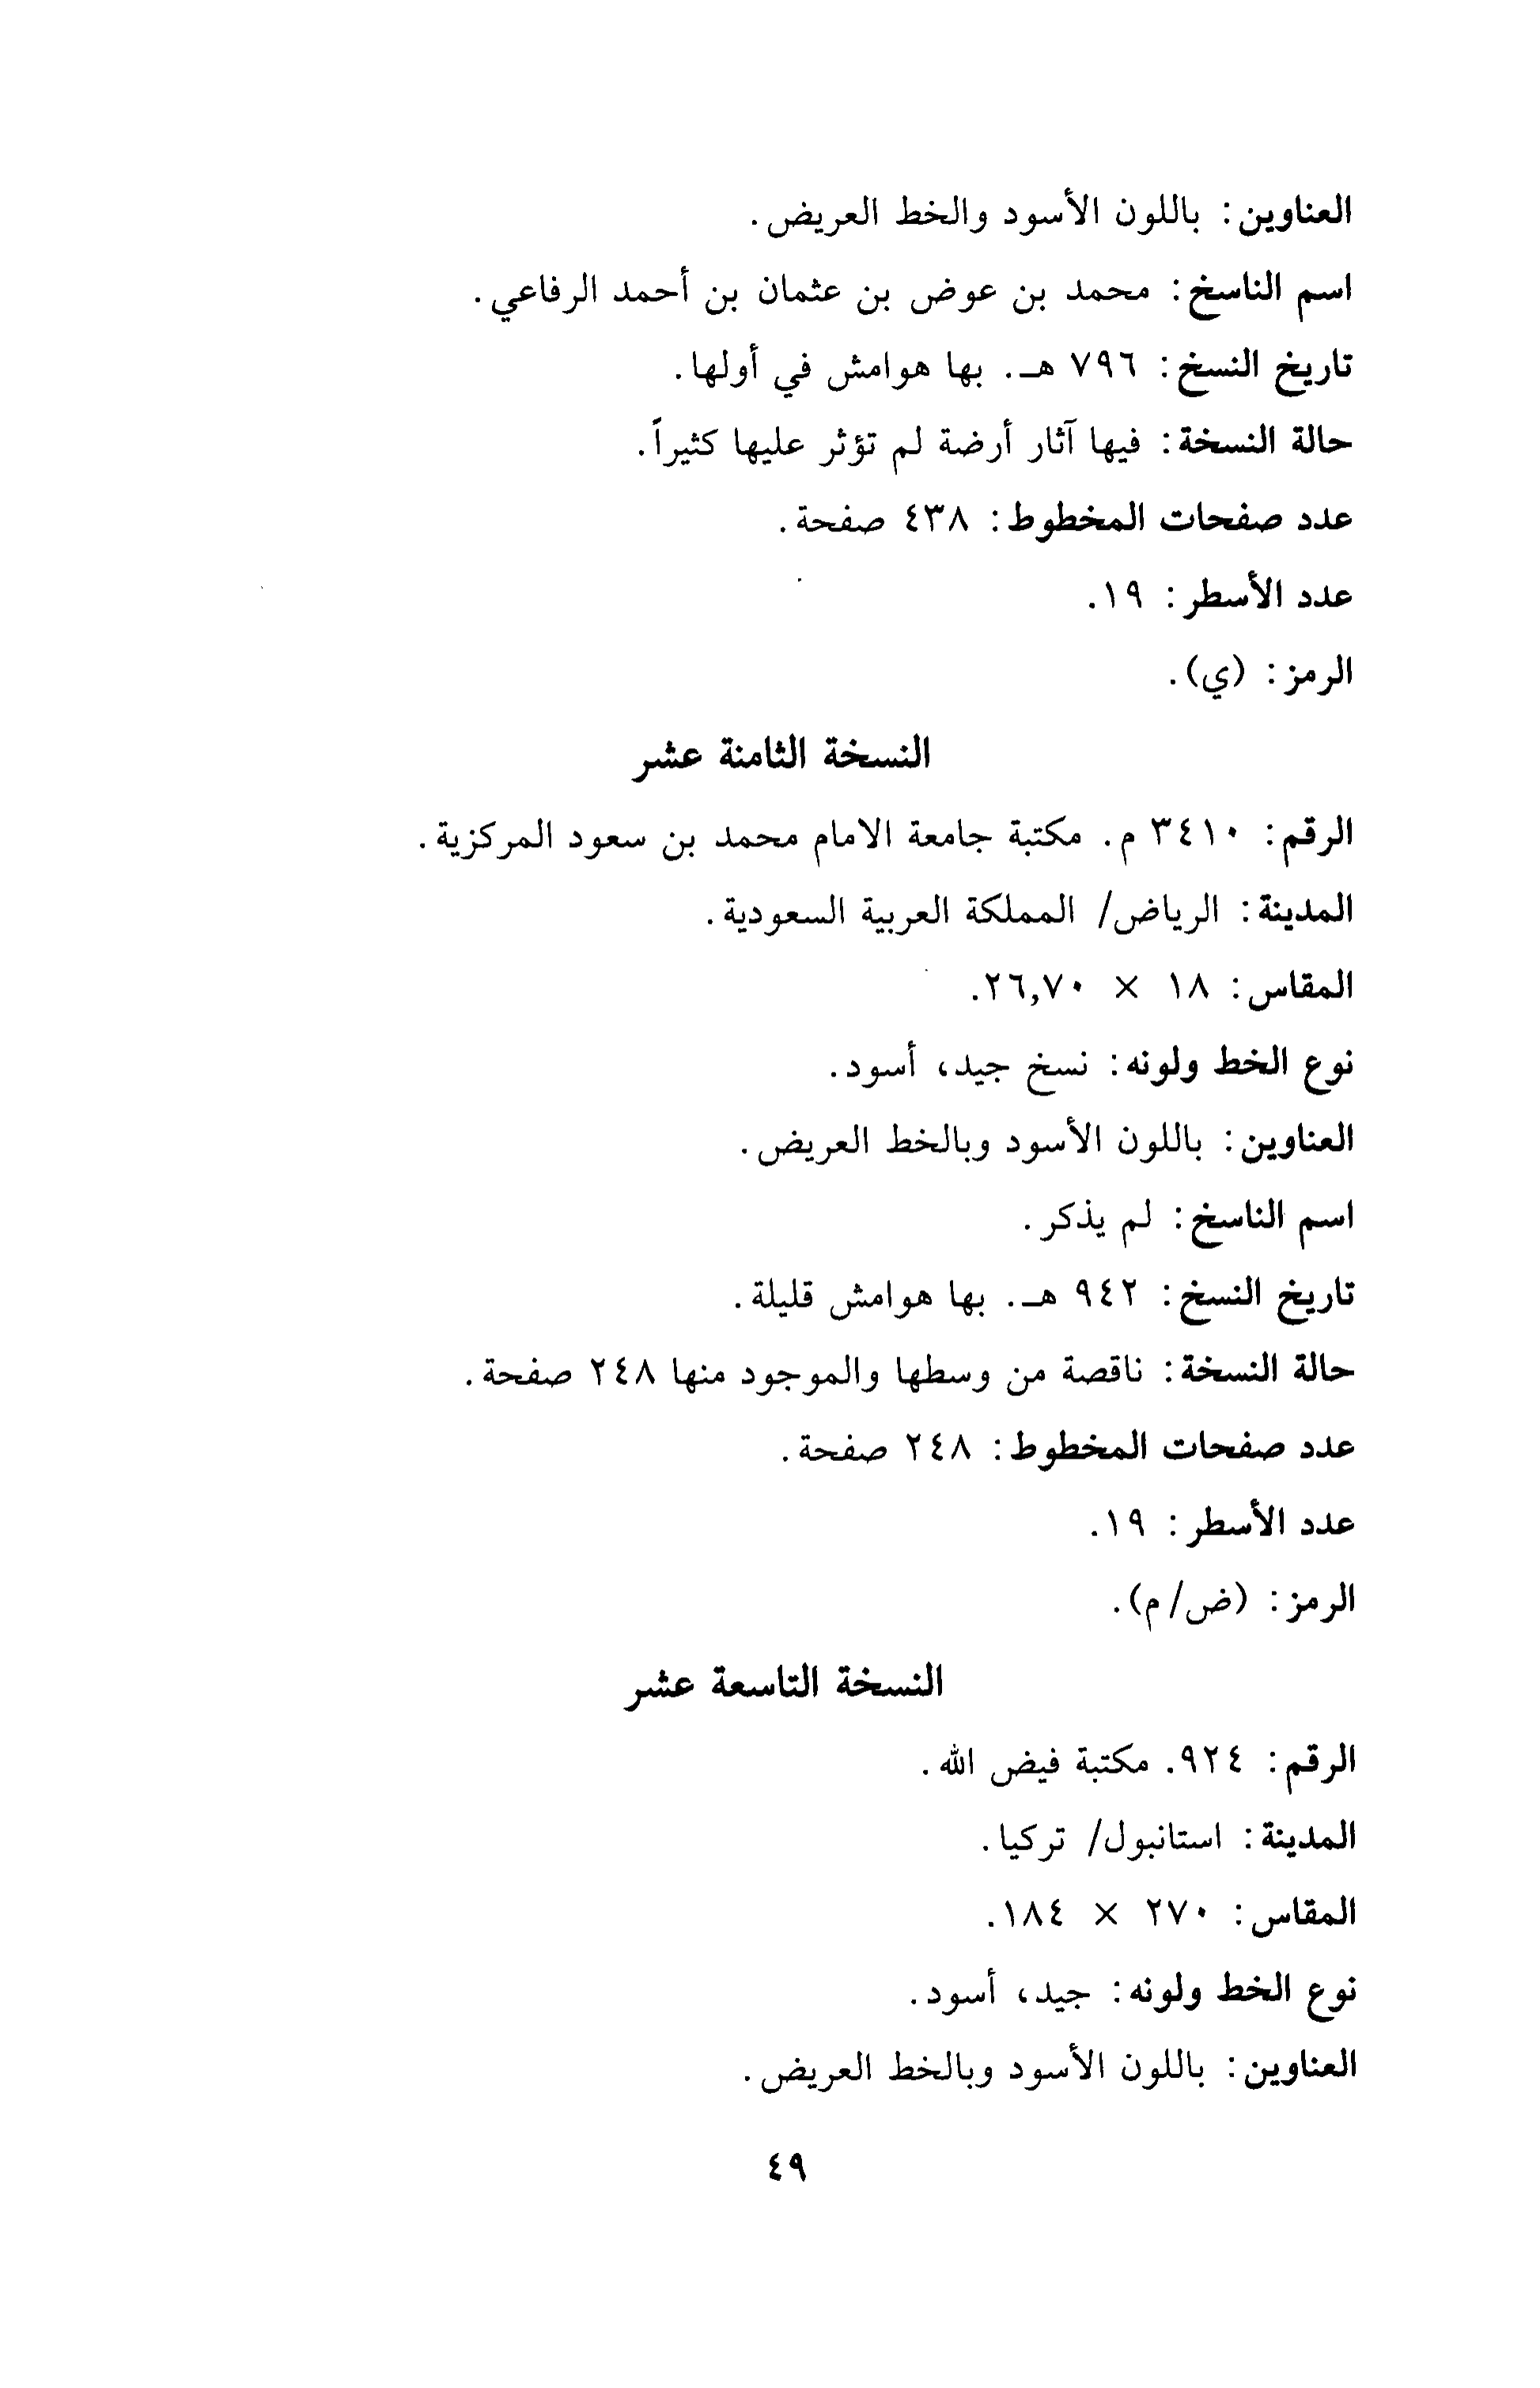 العناوين: باللون الأسود والخط العريض.
اسم الناسخ: محمد بن عوض بن عثمان بن أحمد الرفاعي.
تاريخ النسخ: ٧٩٦ هـ. بها هوامش في أولها.
حالة النسخة: فيها آثار أرضة لم تؤثر عليها كثيراً.
عدد صفحات المخطوط: ٤٣٨ صفحة.
عدد الأسطر: ١٩.
الرمز: (ي).
النسخة الثامنة عشر
الرقم: ٣٤١٠ م. مكتبة جامعة الامام محمد بن سعود المركزية.
المدينة: الرياض/ المملكة العربية السعودية.
المقاس: ١٨ × ٢٦,٧٠.
نوع الخط ولونه: نسخ جيد، أسود.
العناوين: باللون الأسود وبالخط العريض.
اسم الناسخ: لم يذكر.
تاريخ النسخ: ٩٤٢ هـ. بها هوامش قليلة.
حالة النسخة: ناقصة من وسطها والموجود منها ٢٤٨ صفحة.
عدد صفحات المخطوط: ٢٤٨ صفحة.
عدد الأسطر: ١٩.
الرمز: (ض/م).
النسخة التاسعة عشر
الرقم: ٩٢٤. مكتبة فيض الله.
المدينة: استانبول/ تركيا.
المقاس: ٢٧٠ × ١٨٤.
نوع الخط ولونه: جيد، أسود.
العناوين: باللون الأسود وبالخط العريض.
٤٩